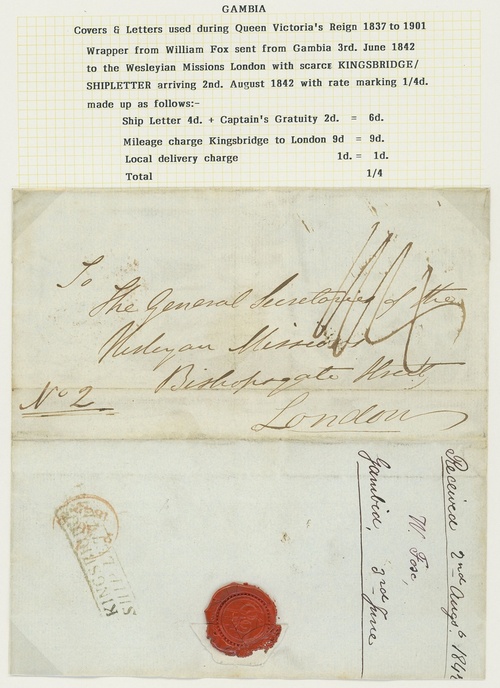 GAMBIA
Covers & Letters used during Queen Victoria's Reign 1837 to 1901
Wrapper from William Fox sent from Gambia 3rd. June 1842
to the Wesleyan Missions London with scarce KINGSBRIDGE/
SHIPLETTER arriving 2nd. August 1842 with rate marking 1/4d.
made up as follows:-
Ship Letter 4d. + Captain's Gratuity 2d. = 6d.
Mileage charge Kingsbridge to London 9d = 9d.
Local delivery charge 1d. = 1d.
Total 1/4
To
The General Secretaries of the
Wesleyan Missions
Bishopsgate Street
London
No 2
Received 2nd Augst 1842
W. Fox,
Gambia, 3rd June
KINGSBRIDGE
SHIP LETTER